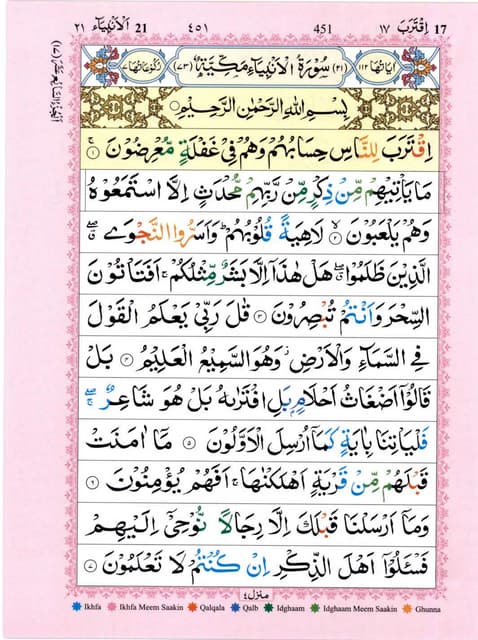 17 اِقْتَرَبَ ١٧ 451 ٤٥١ 21 اَلْاَنْۢبِيَآء ٢١
اٰيَاتُهَا ١١٢ (٢١) سُوْرَةُ الْاَنْۢبِيَآءِ مَكِّيَّةٌ (٧٣) رُكُوْعَاتُهَا ٧
بِسْمِ اللّٰهِ الرَّحْمٰنِ الرَّحِيْمِ
اِقْتَرَبَ لِلنَّاسِ حِسَابُهُمْ وَهُمْ فِيْ غَفْلَةٍ مُّعْرِضُوْنَ ۚ ١
مَا يَاْتِيْهِمْ مِّنْ ذِكْرٍ مِّنْ رَّبِّهِمْ مُّحْدَثٍ اِلَّا اسْتَمَعُوْهُ
وَهُمْ يَلْعَبُوْنَ ۙ ٢ لَاهِيَةً قُلُوْبُهُمْ ؕ وَاَسَرُّوا النَّجْوَى ۖۗ
الَّذِيْنَ ظَلَمُوْا ۖۗ هَلْ هٰذَاۤ اِلَّا بَشَرٌ مِّثْلُكُمْ ۚ اَفَتَاْتُوْنَ
السِّحْرَ وَاَنْتُمْ تُبْصِرُوْنَ ٣ قٰلَ رَبِّيْ يَعْلَمُ الْقَوْلَ
فِي السَّمَآءِ وَالْاَرْضِ ؗ وَهُوَ السَّمِيْعُ الْعَلِيْمُ ٤ بَلْ
قَالُوْۤا اَضْغَاثُ اَحْلَامٍۭ بَلِ افْتَرٰىهُ بَلْ هُوَ شَاعِرٌ ۖۚ
فَلْيَاْتِنَا بِاٰيَةٍ كَمَاۤ اُرْسِلَ الْاَوَّلُوْنَ ٥ مَاۤ اٰمَنَتْ
قَبْلَهُمْ مِّنْ قَرْيَةٍ اَهْلَكْنٰهَا ۚ اَفَهُمْ يُؤْمِنُوْنَ ٦
وَمَاۤ اَرْسَلْنَا قَبْلَكَ اِلَّا رِجَالًا نُّوْحِيْۤ اِلَيْهِمْ
فَسْـَٔلُوْۤا اَهْلَ الذِّكْرِ اِنْ كُنْتُمْ لَا تَعْلَمُوْنَ ٧
منزل ٤
Ikhfa Ikhfa Meem Saakin Qalqala Qalb Idghaam Idghaam Meem Saakin Ghunna